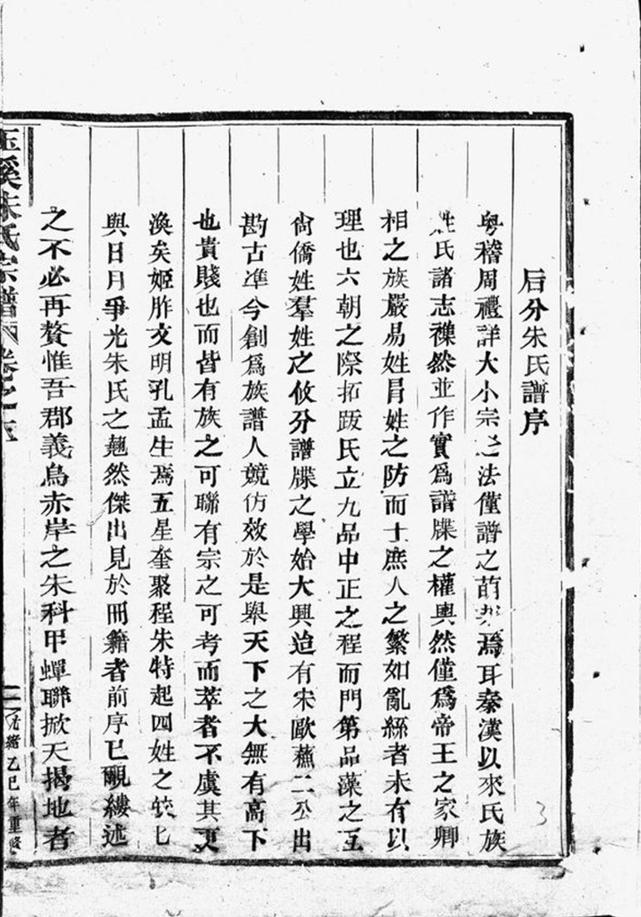 后分朱氏譜序
粵稽周禮詳大小宗之法僅譜之萌焉耳秦漢以來氏族
姓氏諸志襍然並作實爲譜牒之權輿然僅爲帝王之家卿
相之族嚴易姓冐姓之防而士庶人之繁如亂絲者未有以
理也六朝之際拓跋氏立九品中正之程而門第品藻之
尙僑姓羣姓之攸分譜牒之學始大興迨有宋歐蘇二公出
斟古凖今創爲族譜人競仿效於是舉天下之大無有高下
也貴賤也而皆有族之可聯有宗之可考而萃者不虞其更
渙矣姬胙文明孔孟生焉五星奎聚程朱特起四姓之
與日月爭光朱氏之翹然傑出見於冊籍者前序已覼縷述
之不必再贅惟吾郡義烏赤岸之朱科甲蟬聯掀天揭地者
玉溪朱氏宗譜 卷之
光緒乙巳年重修
3